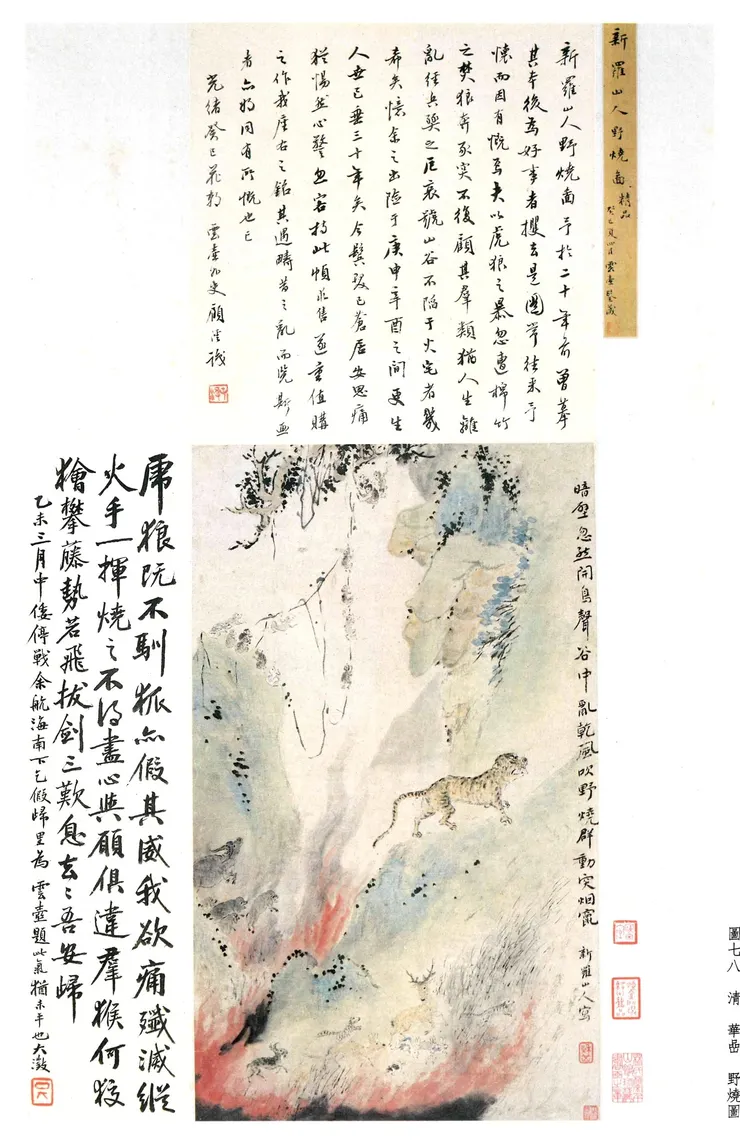 新羅山人野燒圖 精品
癸巳夏四月雲壺鑒藏
新羅山人野燒圖予於二十年前曾摹
其本後為好事者攫去是圖常往來予
懷而因有慨焉夫以虎狼之暴忽遭榛竹
之焚狼奔豕突不復顧其羣類猶人生離
亂經兵燹之厄哀號山谷不陷于火宅者幾
希矣憶余之出險于庚申辛酉之間更生
人世已垂三十年矣今鬢髮已蒼居安思痛
猶惕然心驚忽客持此幀求售遂重值購
之作我座右之銘其遇疇昔之亂而覽斯畫
者亦將同有所慨也已
光緒癸巳花朝 雲壺外史顧澐識
暗壁忽然開鳥聲谷中亂乾風吹野燒群動突烟竄
新羅山人寫
虎狼既不馴狐亦假其威我欲痛殲滅縱
火手一揮燒之不得盡心與願俱違羣猴何狡
獪攀藤勢若飛拔劍三歎息去〻吾安歸
乙未三月中倭停戰余航海南下乞假歸里為雲壺題此氣猶未平也大澂
圖七八 清 華嵒 野燒圖